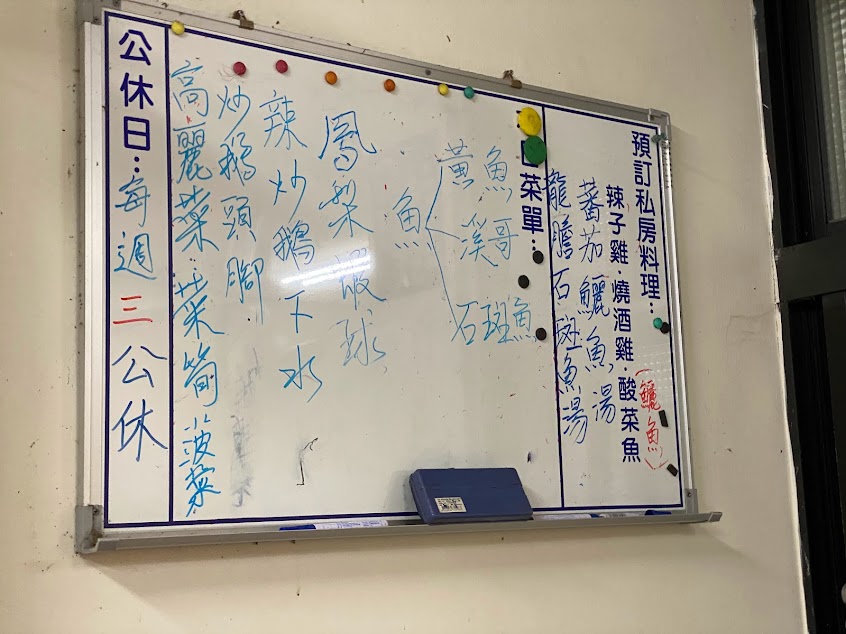 預訂私房料理:
辣子雞.燒酒雞.酸菜魚
(鱷魚)
蕃茄鱷魚湯
龍膽石斑魚湯
菜單:
黃魚
溪哥
石斑魚
魚
鳳梨蝦球
辣炒鵝下水
炒鵝頭腳
高麗菜.菜筍 菠菜
公休日:每週三公休